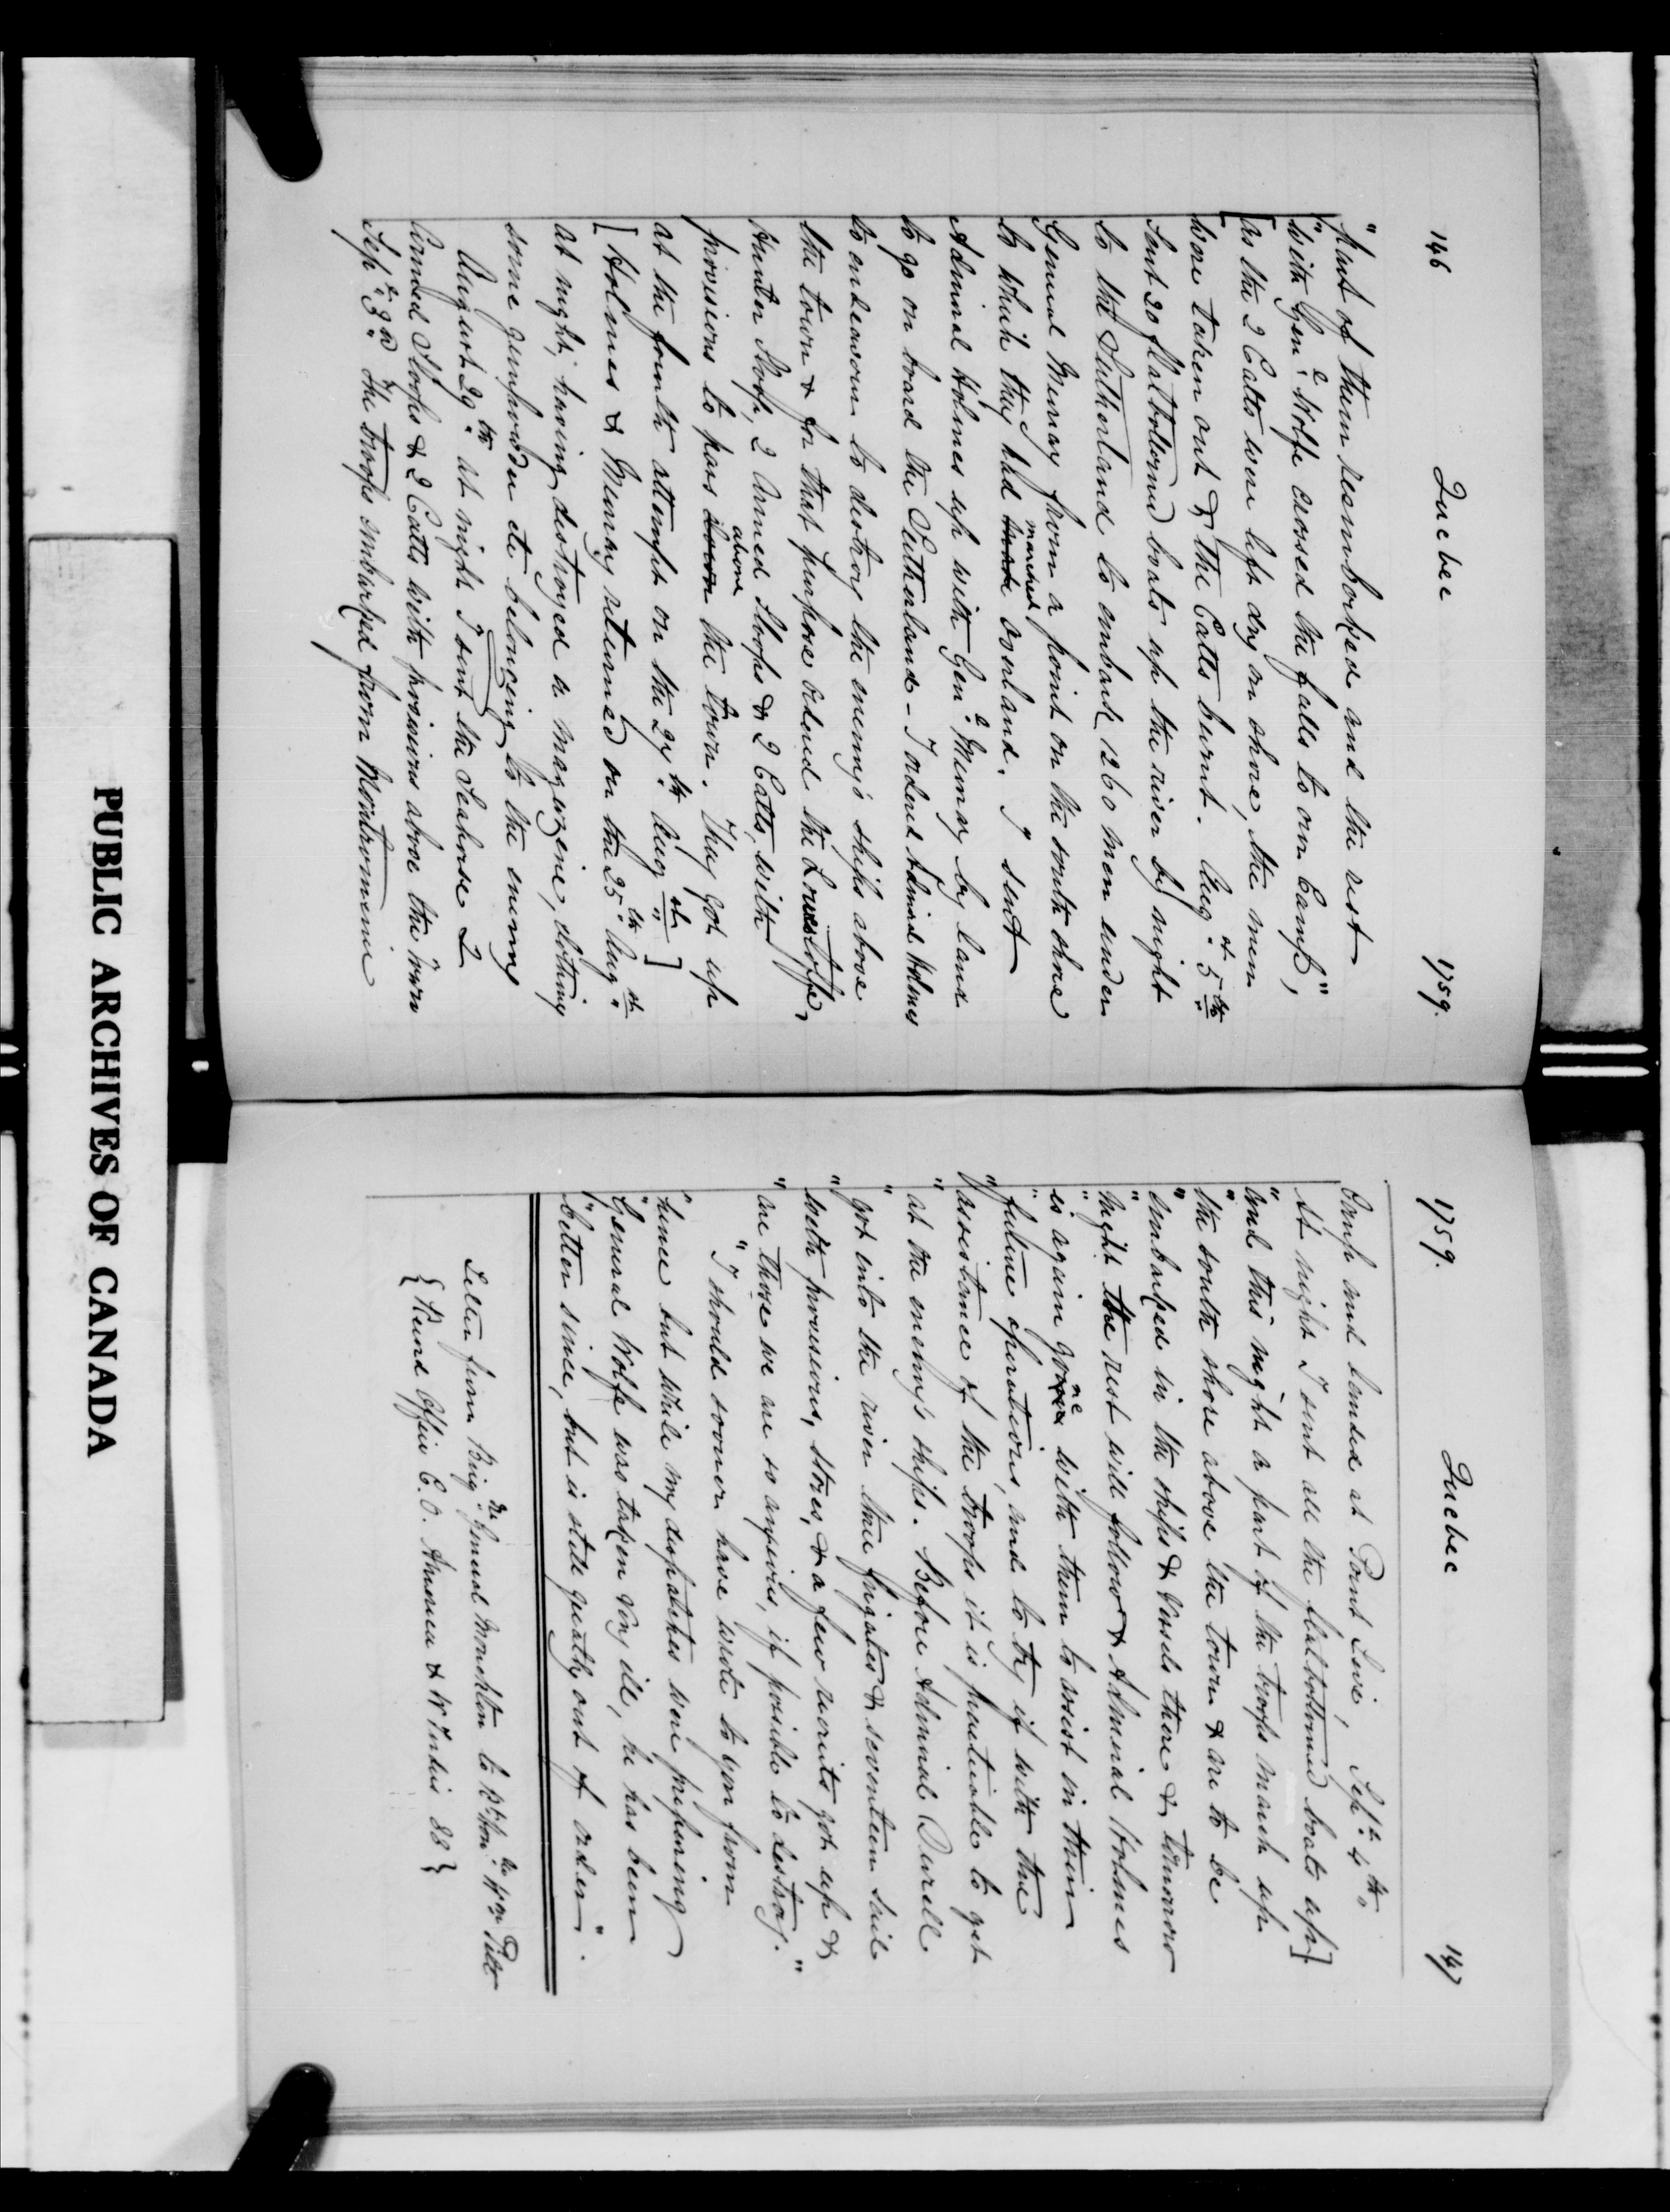 146 Quebec 1759.
"part of them reembarked and the rest
"with Gen.l Wolfe crossed the falls to our Camp",
[as the 2 Catts were left dry on shore, the men
were taken out & the Catts burnt. Aug.st 5.th
Sent 20 flatbottomed boats up the river by night
to the Sutherland to embark 1260 men under
General Murray from a point on the south shore
to which they had made marched overland. I sent
Admiral Holmes up with Gen.l Murray by land
to go on board the Sutherland – I ordered Admiral Holmes
to endeavour to destroy the enemy's ships above
the town & for that purpose ordered the Lowestoffe,
Hunter Sloop, 2 Armed Sloops & 2 Catts, with
provisions to pass down above the town. They got up
at the fourth attempt on the 27.th Aug.st]
[Holmes & Murray returned on the 25.th Aug.st
at night, having destroyed a magazine, clothing
some gunpowder etc belonging to the enemy
August 29.th at night I sent the Seahorse 2
Armed Sloops & 2 Catts with provisions above the town
Sep.r 3.rd The troops embarked from Montmorencie
1759. Quebec 147
Camp and landed at Point Levi, Sep.tr 4.th
At night I sent all the flatbottomed boats up]
"and this night a part of the troops march up
"the south shore above the town & are to be
"embarked in the ships & vessels there & tomorrow
"night the rest will follow & Admiral Holmes
"is again gone with them to assist in their
"future operations, and to try if with the
"assistance of the troops it is practicable to get
"at the enemy's ships. Before Admiral Durell
"got into the river three frigates & seventeen sail
"with provisions, stores, & a few recruits got up &
"are those we are so anxious, if possible to destroy."
"I should sooner have wrote to you from
"hence but while my despatches were preparing
"General Wolfe was taken very ill, he has been
"better since, but is still greatly out of order".
Letter from Brig.dr General Monckton to R.t Hon.ble W.m Pitt
{Record Office C.O. America & W Indies 88}
PUBLIC ARCHIVES OF CANADA